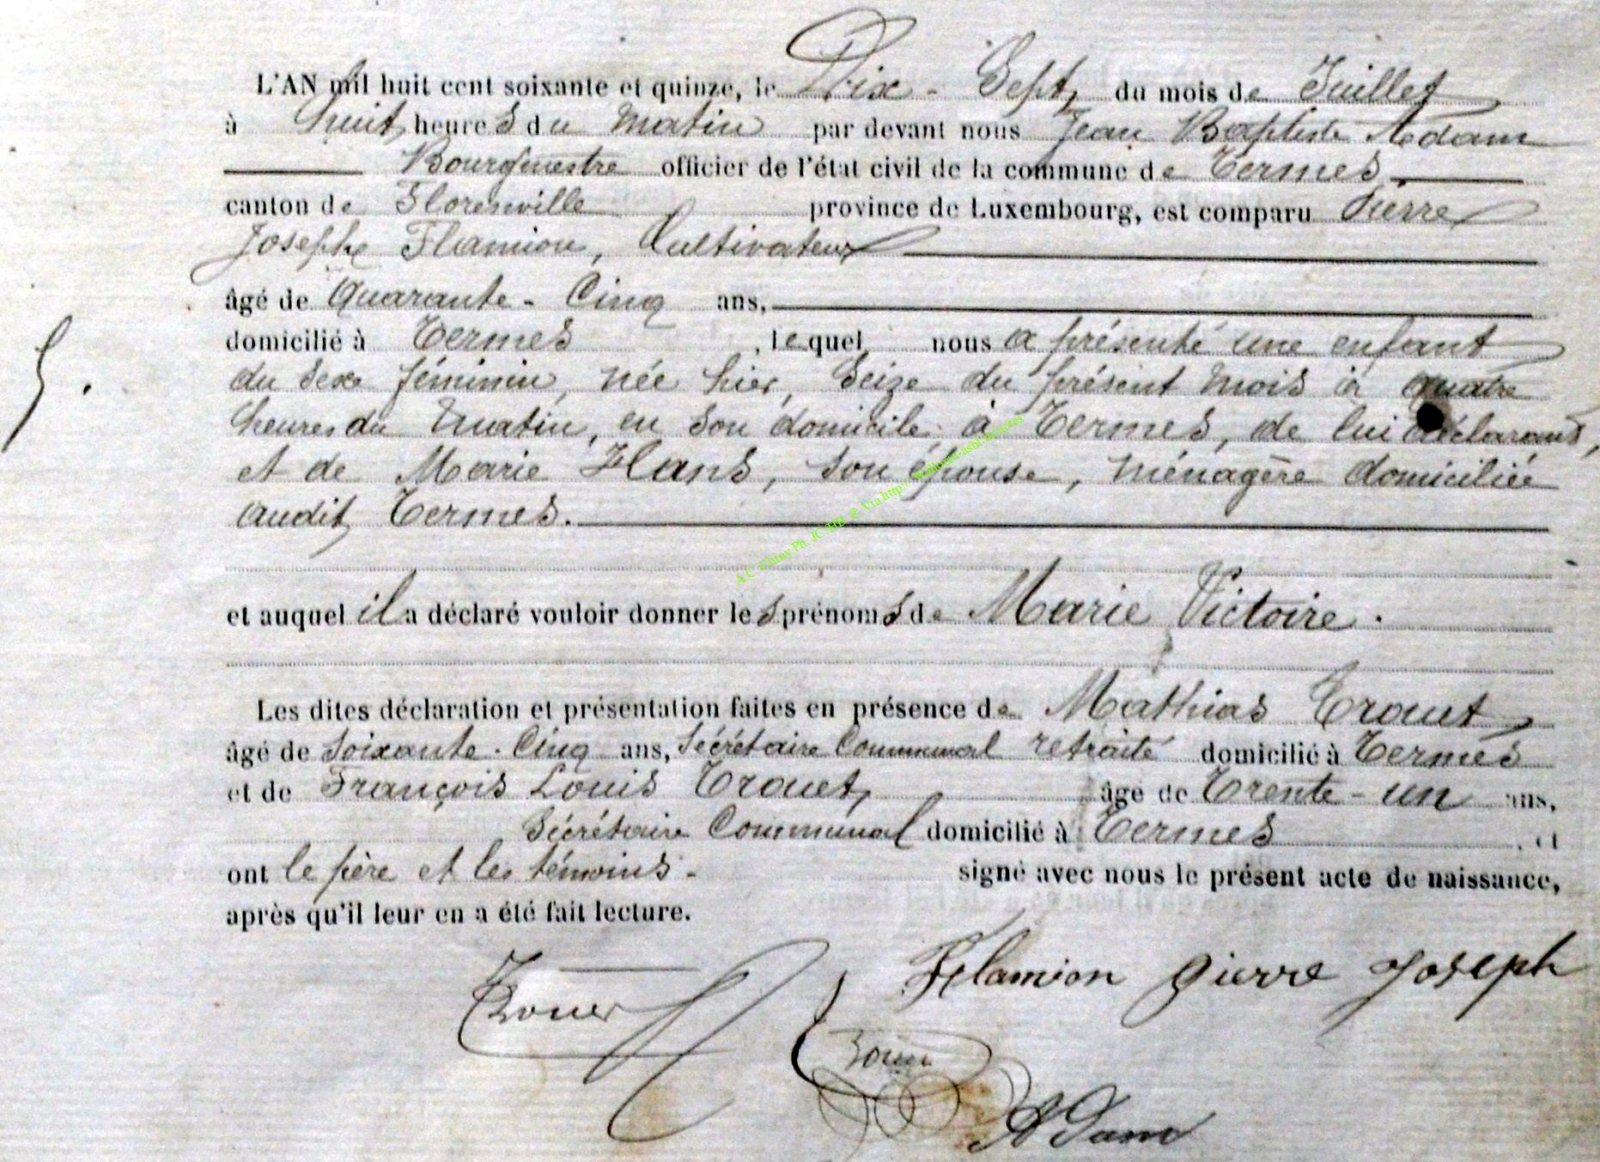 L'AN mil huit cent soixante et quinze, le Dix-Sept, du mois de Juillet
à huit heures du matin par devant nous Jean Baptiste Adam
Bourgmestre officier de l'état civil de la commune de Termes
canton de Florenville province de Luxembourg, est comparu Pierre
Joseph Flamion, Cultivateur
âgé de Quarante-Cinq ans,
domicilié à Termes, lequel nous a présenté une enfant
du sexe féminin, née hier, Seize du présent mois à quatre
5.
heures du matin, en son domicile à Termes, de lui déclarant,
et de Marie Hans, son épouse, ménagère domiciliée
audit Termes.
et auquel il a déclaré vouloir donner les prénoms de Marie Victoire.
Les dites déclaration et présentation faites en présence de Mathias Trouet,
âgé de soixante-Cinq ans, Secrétaire Communal retraité domicilié à Termes
et de François Louis Trouet, âgé de Trente-un ans,
Secrétaire Communal domicilié à Termes, et
ont le père et les témoins. signé avec nous le présent acte de naissance,
après qu'il leur en a été fait lecture.
Flamion pierre joseph
Trouet
Adam